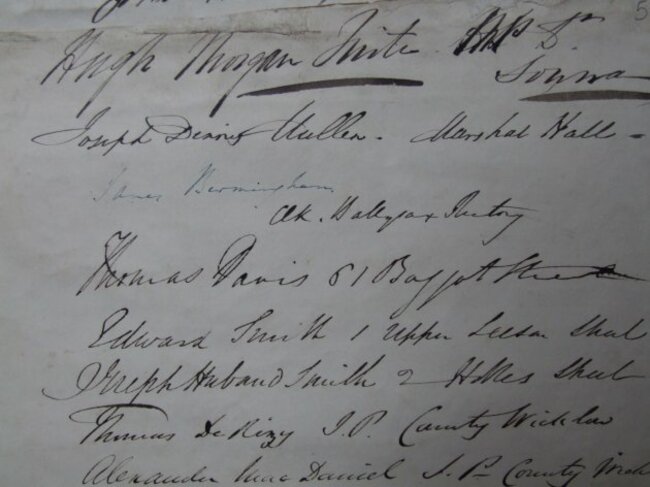 5
Hugh Morgan Tuite
Sonna
Joseph Dennis Mullen - Marshal Hall -
James Bermingham
Thomas Davis 61 Baggot Street
Edward Smith 1 Upper Leeson Street
Joseph Huband Smith 2 Holles Street
Thomas DeRinzy J.P. County Wicklow
Alexander Mac Daniel J.P. County